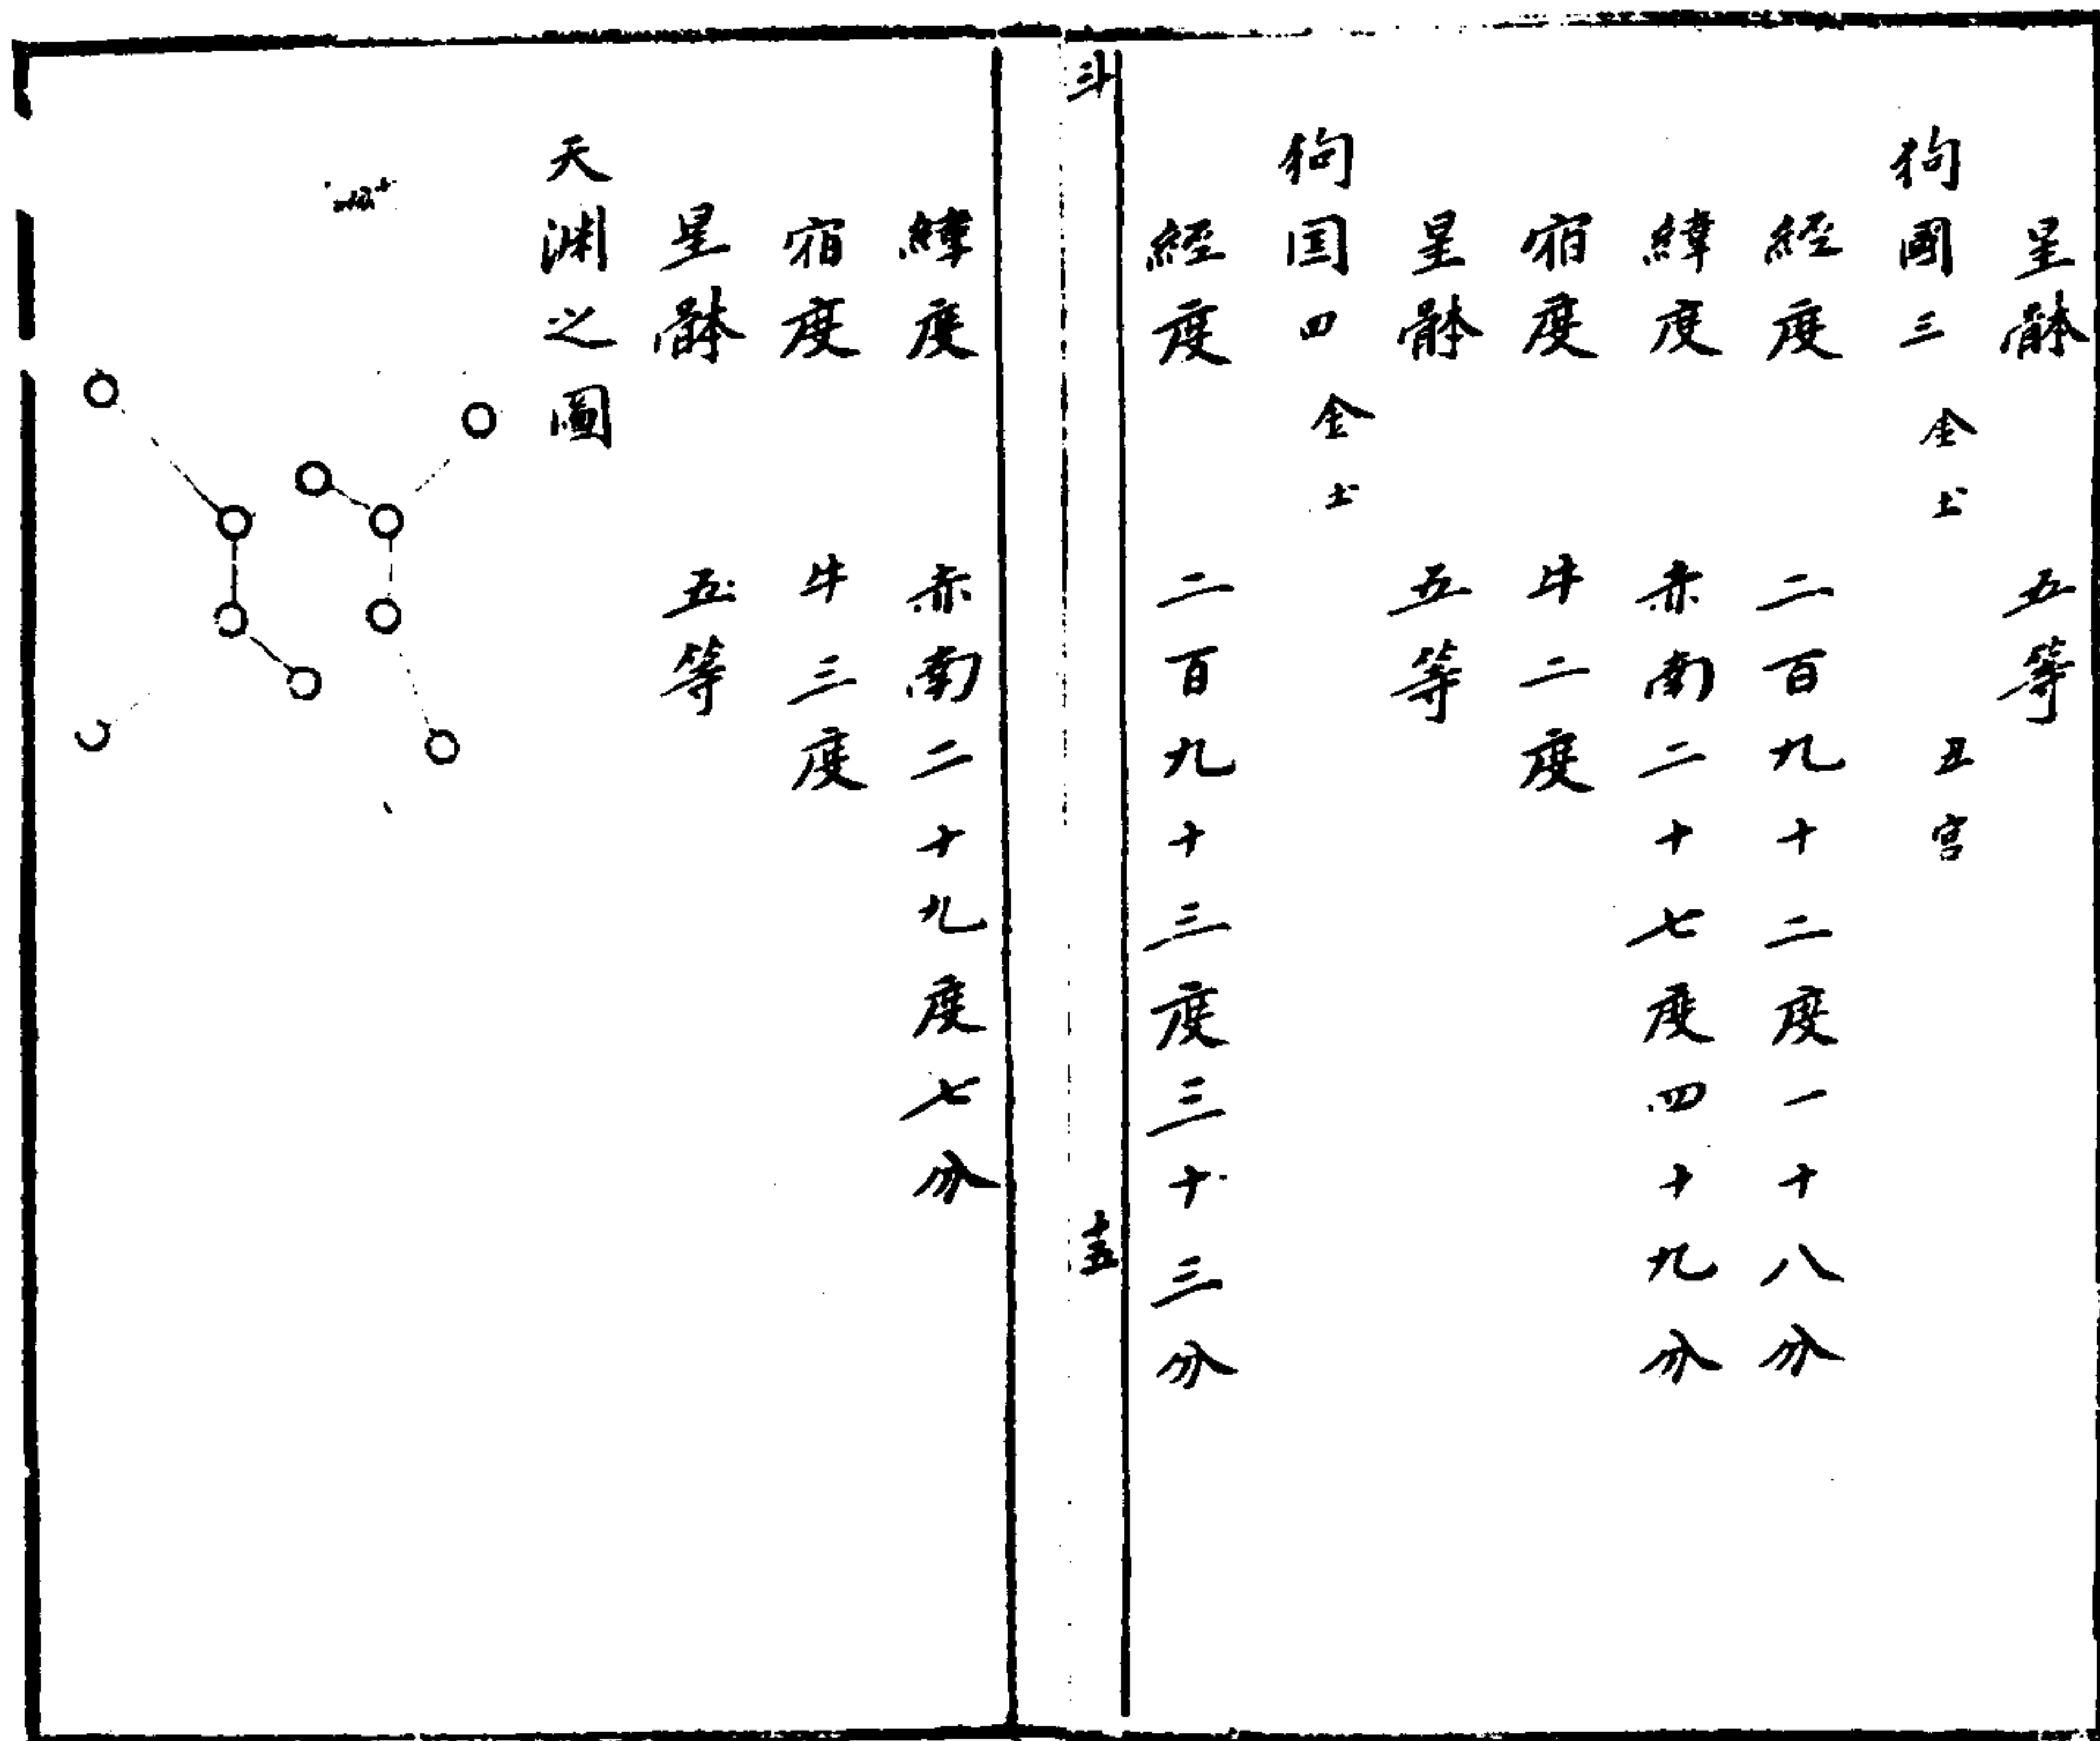 星體 五等
狗國三 金土 丑宮
经度 二百九十二度一十八分
緯度 赤南二十七度四十九分
宿度 牛二度
星體 五等
狗国四 金土
經度 二百九十三度三十三分
斗 十五
緯度 赤南二十九度七分
宿度 牛三度
星體 五等
天渊之圖